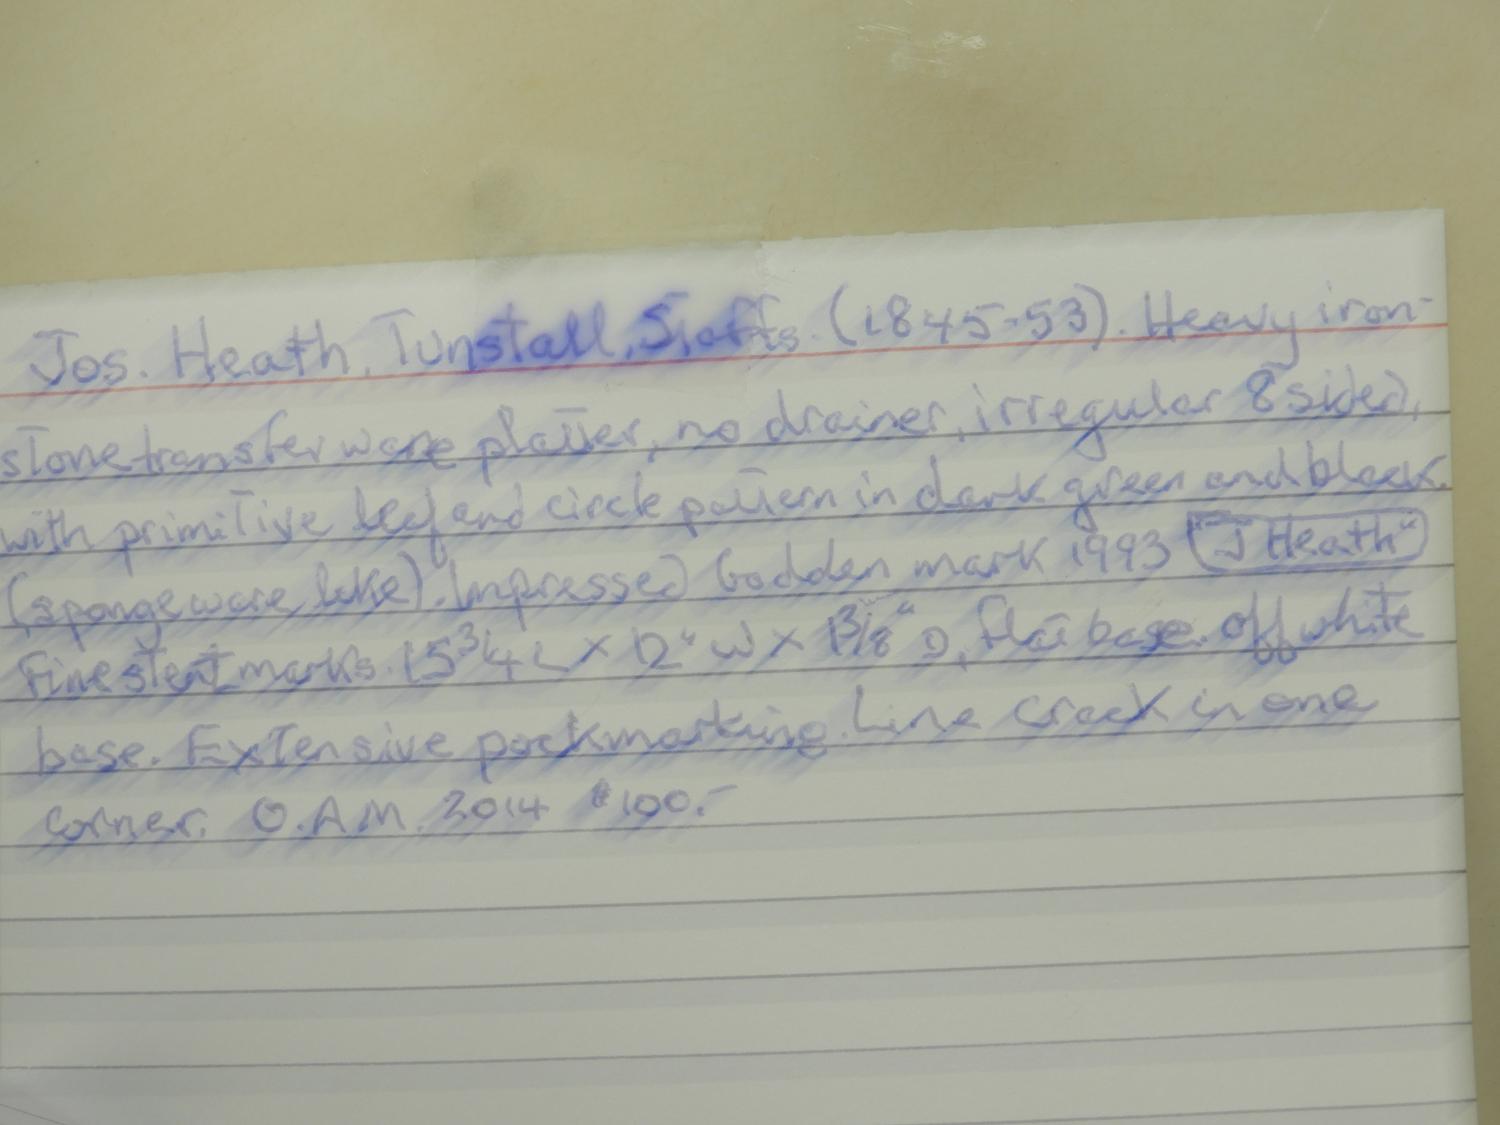 Jos. Heath, Tunstall, Staffs. (1845-53). Heavy iron-
stone transfer ware platter, no drainer, irregular 8 sided,
with primitive leaf and circle pattern in dark green and black.
(spongeware like). Impressed Godden mark 1993 "J Heath"
Fine stent marks. 15 3/4 L x 12" W x 1 3/8" D, flat base. off white
base. Extensive pockmarking. Line crack in one
corner. O.A.M. 2014 $100.-